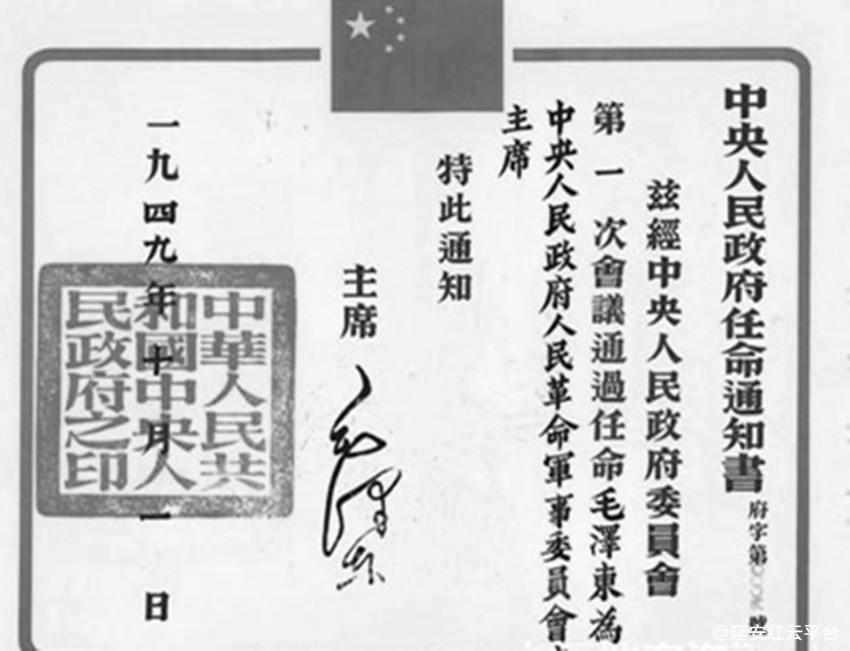 中央人民政府任命通知書
府字第
茲經中央人民政府委員會
第一次會議通過任命毛澤東為
中央人民政府人民革命軍事委員會
主席
特此通知
主席
毛澤東
一九四九年十月一日
中華人民共
和國中央人
民政府之印
@延安红云平台